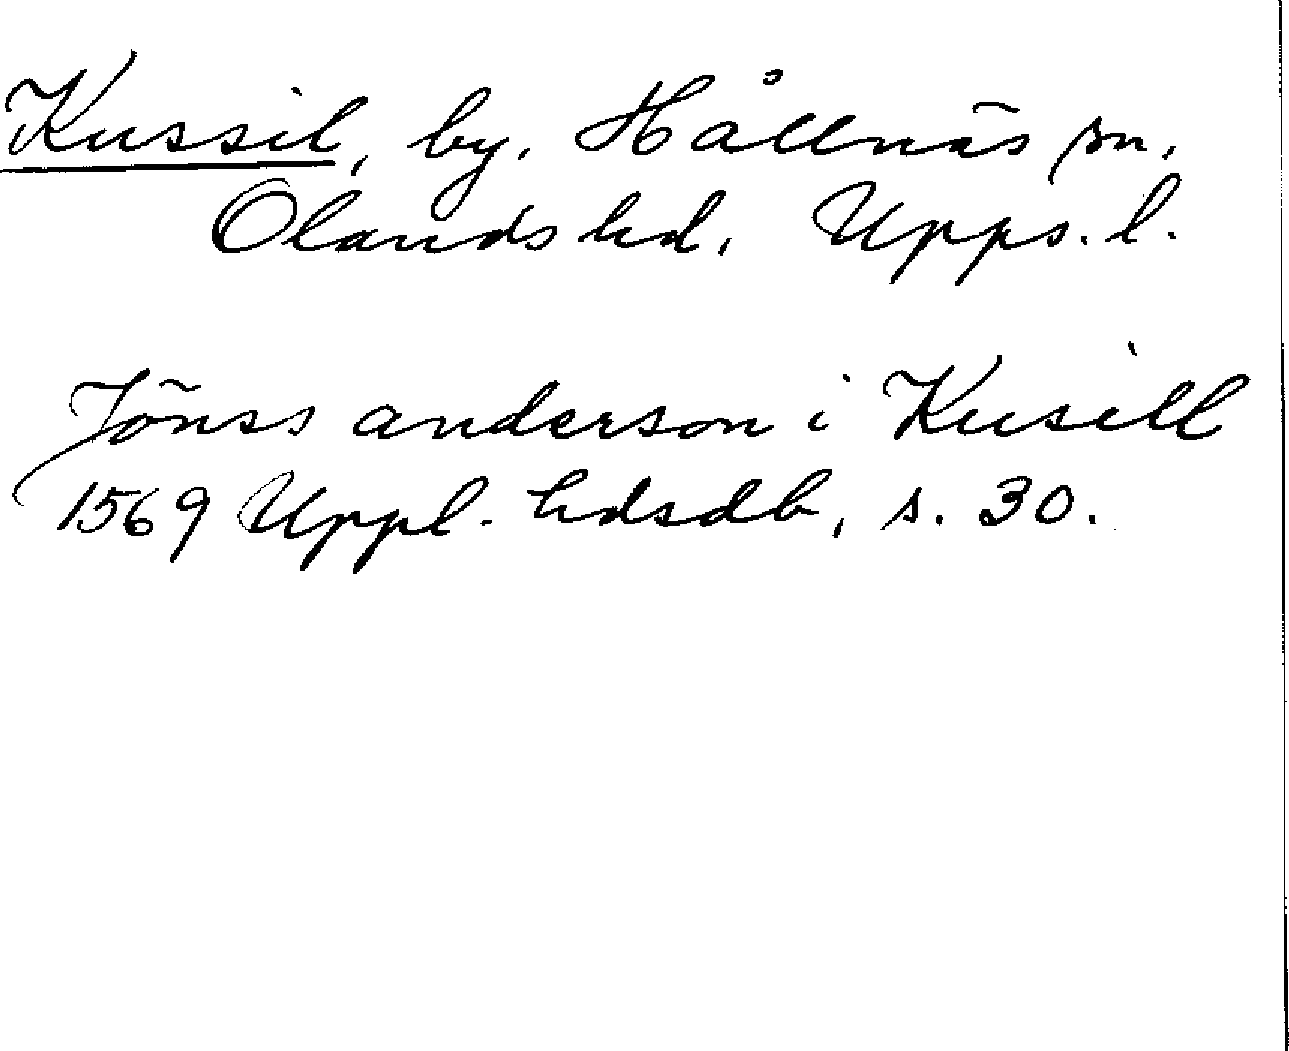 Kussil, by. Hållnäs sn,
Olands hd, Upps. l.
Jönss anderson i Kusill
1569 Uppl. hdsdb, s. 30.